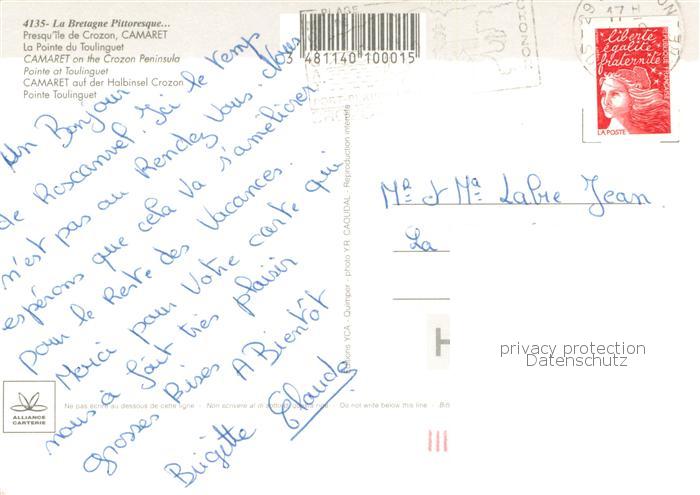 4135- La Bretagne Pittoresque...
Presqu'île de Crozon, CAMARET
La Pointe du Toulinguet
CAMARET on the Crozon Peninsula
Pointe at Toulinguet
CAMARET auf der Halbinsel Crozon
Pointe Toulinguet
3 481140 100015
PLAGE
29
17
liberté
égalité
fraternité
RÉPUBLIQUE FRANÇAISE
LA POSTE
Un Bonjour
de Roscanvel. Ici le temps
n'est pas au Rendez Vous. Nous
espérons que cela va s'améliorer
pour le Reste des Vacances.
Merci pour Votre carte qui
nous à fait très plaisir
grosses Bises A Bientôt
Brigitte Claude
Mr et Ma Labre Jean.
La
Editions YCA - Quimper - photo Y.R. CAOUDAL - Reproduction interdite
H
privacy protection
Datenschutz
ALLIANCE
CARTERIE
Ne pas écrire au dessous de cette ligne - Non scrivere al di sotto - Do not write below this line -